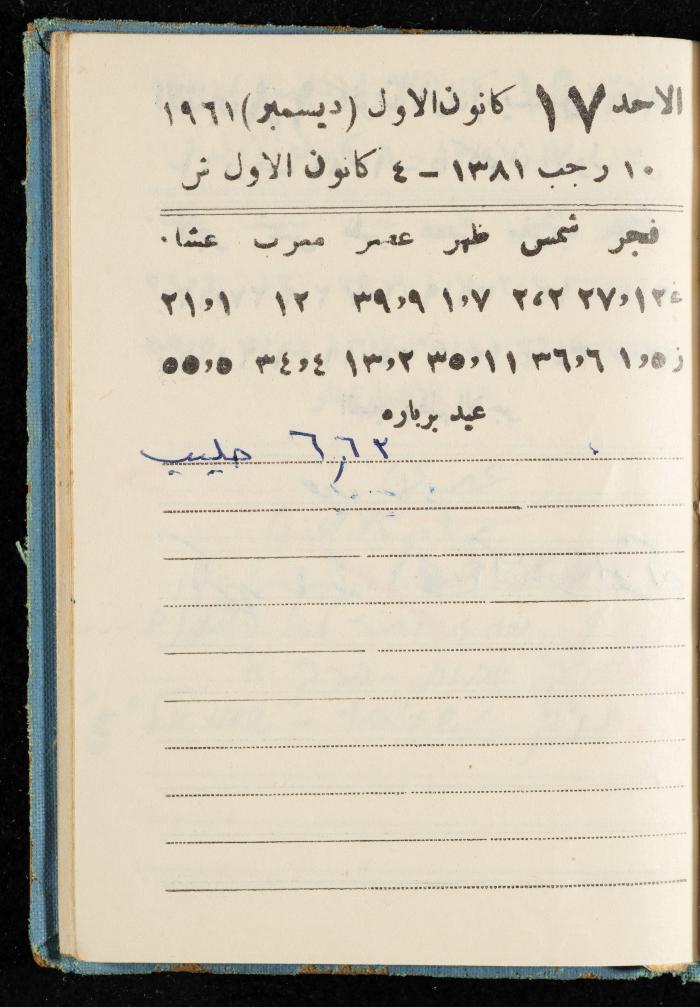 الاحد ١٧ كانون الاول (ديسمبر) ١٩٦١
١٠ رجب ١٣٨١ – ٤ كانون الاول ش
فجر شمس ظهر عصر مغرب عشاء
غ١٢و٢٧ ٢،٢ ٧و١ ٩و٣٩ ١٢ ١و٢١
ز٥و١ ٦و٣٦ ١١و٣٥ ٢و١٣ ٤و٣٤ ٥و٥٥
عيد برباره
٦,٦٢ حليب